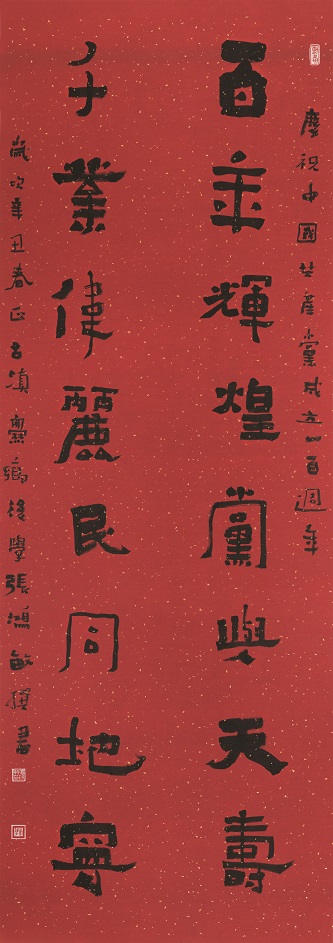 慶祝中國共產黨成立一百週年
百年輝煌黨與天壽
千業偉麗民同地寧
歲次辛丑春正古滇爨鄉後學張鴻敏撰書